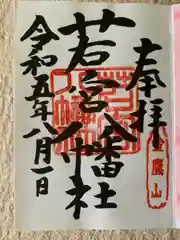 奉拝
若宮八幡神社
令和五年八月一日
鷹山